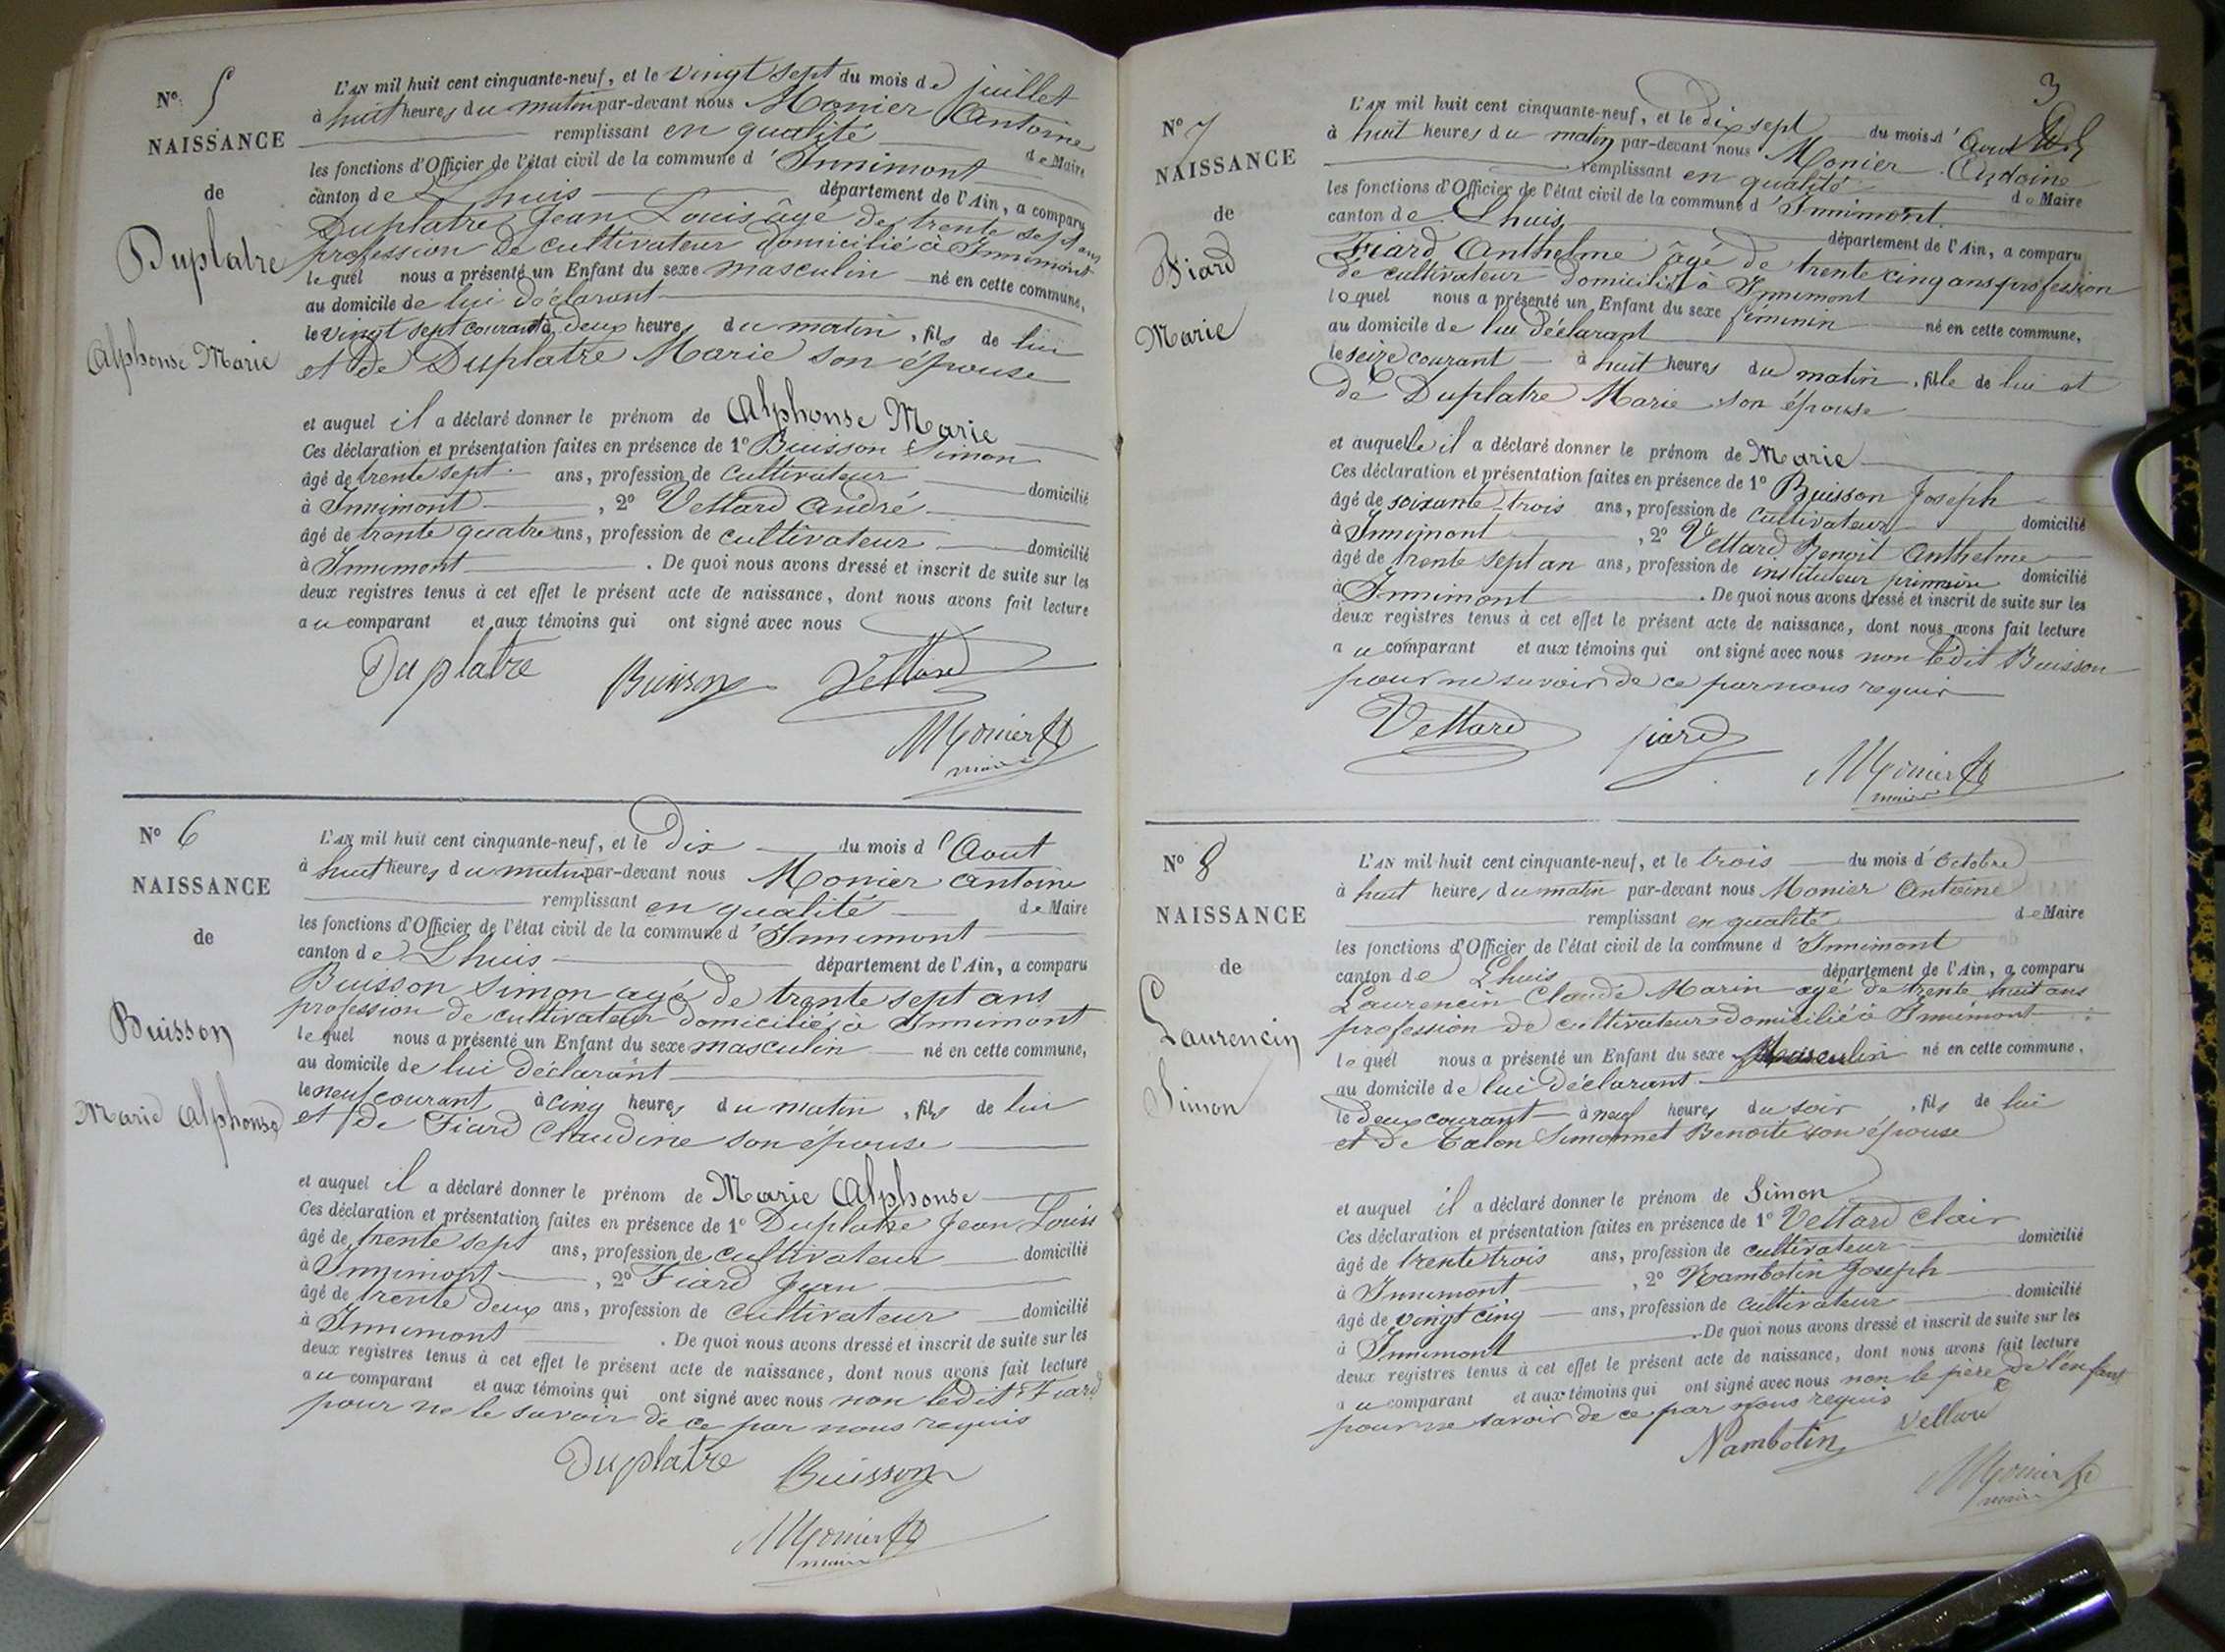 N° 5
NAISSANCE
de
Duplatre
Alphonse Marie
L'AN mil huit cent cinquante-neuf, et le vingt sept du mois de juillet
à huit heures du matin par-devant nous Monier Antoine
remplissant en qualité de Maire
les fonctions d'Officier de l'état civil de la commune d'Innimont
canton de Lhuis département de l'Ain, a comparu
Duplatre Jean Louis âgé de trente sept ans
profession de cultivateur domicilié à Innimont
lequel nous a présenté un Enfant du sexe masculin né en cette commune,
au domicile de lui déclarant
le vingt sept courant à deux heures du matin, fils de lui
et de Duplatre Marie son épouse
et auquel il a déclaré donner le prénom de Alphonse Marie
Ces déclaration et présentation faites en présence de 1° Buisson Simon
âgé de trente sept ans, profession de cultivateur domicilié
à Innimont, 2° Vettard André
âgé de trente quatre ans, profession de cultivateur domicilié
à Innimont. De quoi nous avons dressé et inscrit de suite sur les
deux registres tenus à cet effet le présent acte de naissance, dont nous avons fait lecture
au comparant et aux témoins qui ont signé avec nous
Duplatre Buisson Vettard
Monier
maire
N° 6
NAISSANCE
de
Buisson
Marie Alphonse
L'AN mil huit cent cinquante-neuf, et le Dix du mois d'Aout
à huit heures du matin par-devant nous Monier Antoine
remplissant en qualité de Maire
les fonctions d'Officier de l'état civil de la commune d'Innimont
canton de Lhuis département de l'Ain, a comparu
Buisson Simon agé de trente sept ans
profession de cultivateur domicilié à Innimont
lequel nous a présenté un Enfant du sexe masculin né en cette commune,
au domicile de lui déclarant
le neuf courant à cinq heures du matin, fils de lui
et de Fiard Claudine son épouse
et auquel il a déclaré donner le prénom de Marie Alphonse
Ces déclaration et présentation faites en présence de 1° Duplatre Jean Louis
âgé de trente sept ans, profession de cultivateur domicilié
à Innimont, 2° Fiard Jean
âgé de trente deux ans, profession de cultivateur domicilié
à Innimont. De quoi nous avons dressé et inscrit de suite sur les
deux registres tenus à cet effet le présent acte de naissance, dont nous avons fait lecture
au comparant et aux témoins qui ont signé avec nous non ledit Fiard
pour ne le savoir de ce par nous requis
Duplatre Buisson
Monier
maire
3
N° 7
NAISSANCE
de
Fiard
Marie
L'AN mil huit cent cinquante-neuf, et le dix sept du mois d'Aout
à huit heures du matin par-devant nous Monier Antoine
remplissant en qualité de Maire
les fonctions d'Officier de l'état civil de la commune d'Innimont
canton de Lhuis département de l'Ain, a comparu
Fiard Anthelme âgé de trente cinq ans profession
de cultivateur domicilié à Innimont
lequel nous a présenté un Enfant du sexe féminin né en cette commune,
au domicile de lui déclarant
le seize courant à huit heures du matin, fille de lui et
de Duplatre Marie son épouse
et auquelle il a déclaré donner le prénom de Marie
Ces déclaration et présentation faites en présence de 1° Buisson Joseph
âgé de soixante trois ans, profession de cultivateur domicilié
à Innimont, 2° Vettard Benoit Anthelme
âgé de trente sept an ans, profession de instituteur primaire domicilié
à Innimont. De quoi nous avons dressé et inscrit de suite sur les
deux registres tenus à cet effet le présent acte de naissance, dont nous avons fait lecture
au comparant et aux témoins qui ont signé avec nous non ledit Buisson
pour ne savoir de ce par nous requis
Vettard fiard
Monier
maire
N° 8
NAISSANCE
de
Laurencin
Simon
L'AN mil huit cent cinquante-neuf, et le trois du mois d'Octobre
à huit heures du matin par-devant nous Monier Antoine
remplissant en qualité de Maire
les fonctions d'Officier de l'état civil de la commune d'Innimont
canton de Lhuis département de l'Ain, a comparu
Laurencin Claude Marin agé de trente huit ans
profession de cultivateur domicilié à Innimont
lequel nous a présenté un Enfant du sexe Masculin né en cette commune,
au domicile de lui déclarant
le deux courant à neuf heures du soir, fils de lui
et de Talon Simonnet Benoite son épouse
et auquel il a déclaré donner le prénom de Simon
Ces déclaration et présentation faites en présence de 1° Vettard Clair
âgé de trente trois ans, profession de cultivateur domicilié
à Innimont, 2° Nambotin Joseph
âgé de vingt cinq ans, profession de cultivateur domicilié
à Innimont. De quoi nous avons dressé et inscrit de suite sur les
deux registres tenus à cet effet le présent acte de naissance, dont nous avons fait lecture
au comparant et aux témoins qui ont signé avec nous non le père de l'enfant
pour ne savoir de ce par nous requis
Nambotin Vettard
Monier
maire